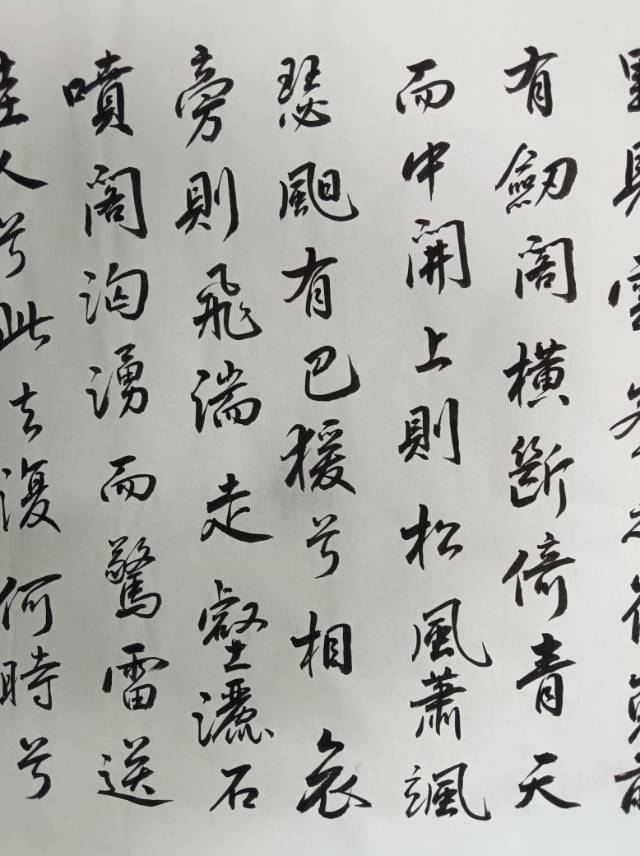 里見雲峯之崔嵬前
有劒閣橫斷倚青天
而中開上則松風蕭颯
瑟䫻有巴猨兮相哀
旁則飛湍走壑灑石
噴閣洶湧而驚雷送
佳人兮此去復何時兮